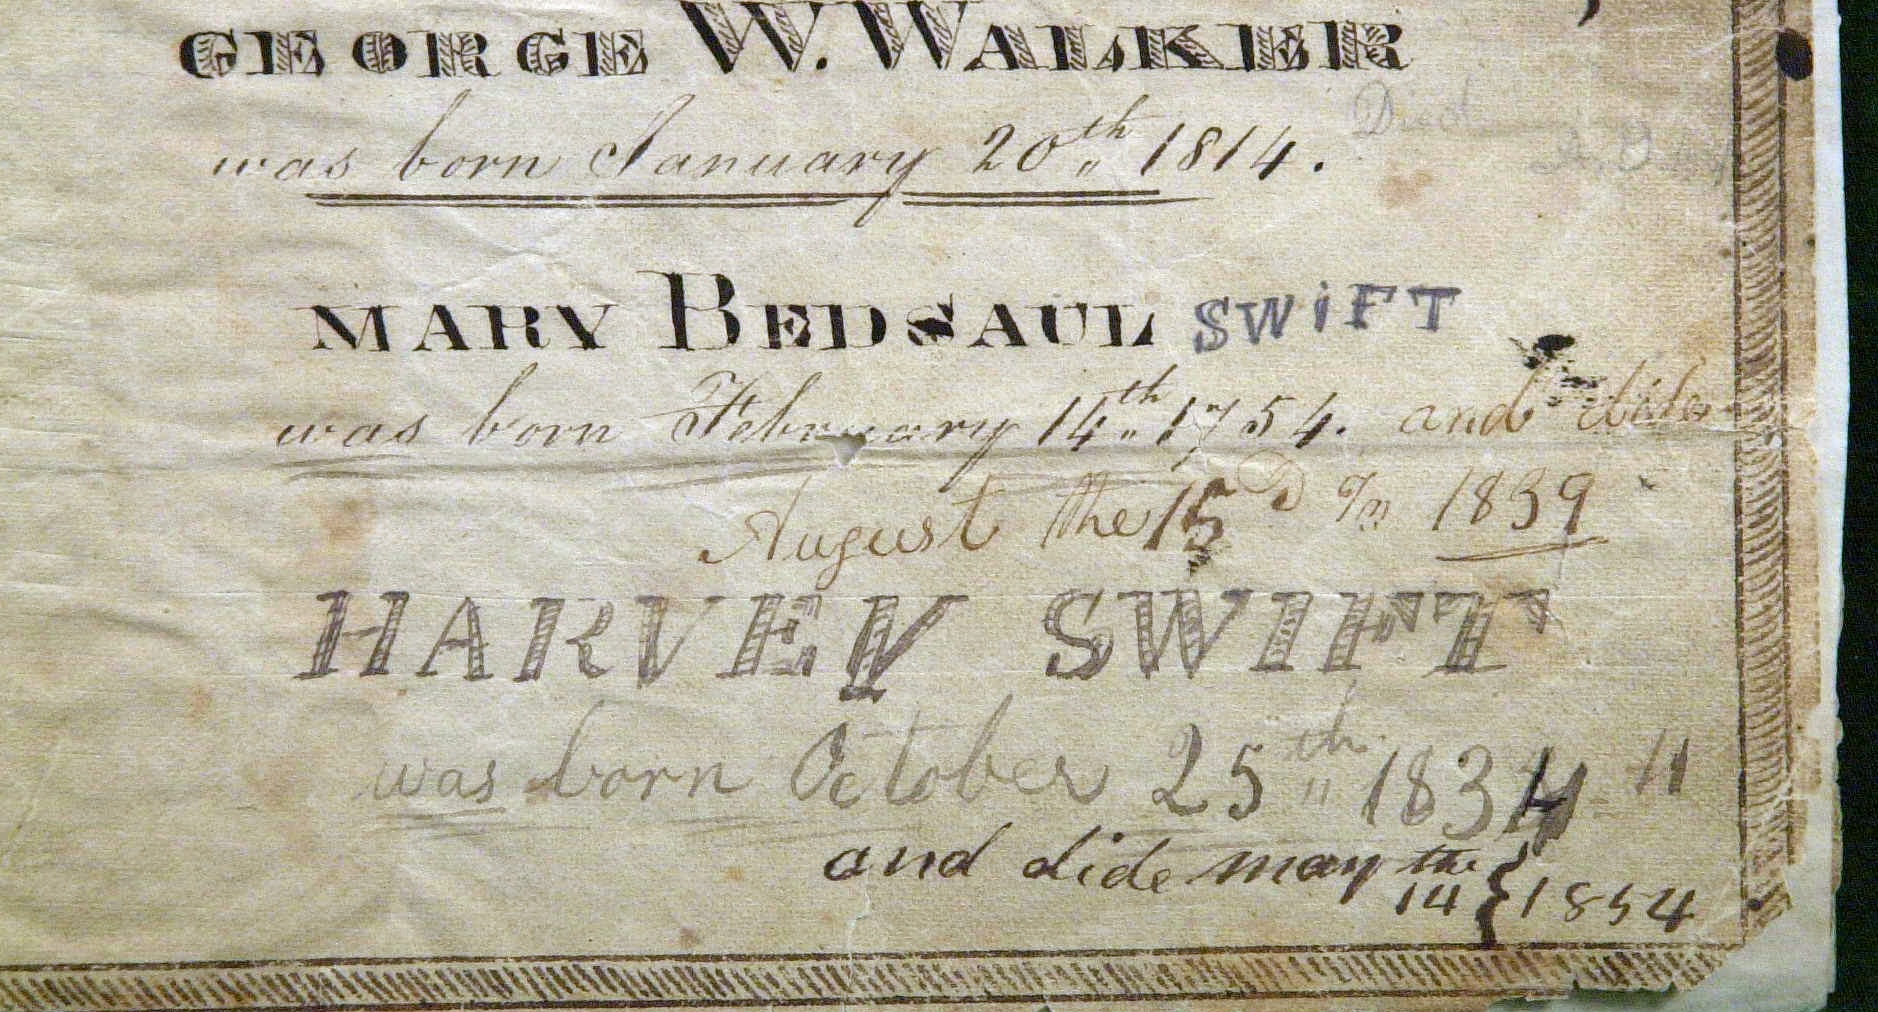 GEORGE W. WALKER
was born January 20th 1814. Died
MARY BEDSAUL SWIFT
was born February 14th 1754. and dide
August the 15 D 1839
HARVEY SWIFT
was born October 25th 1834 11
and dide may the
14 } 1854